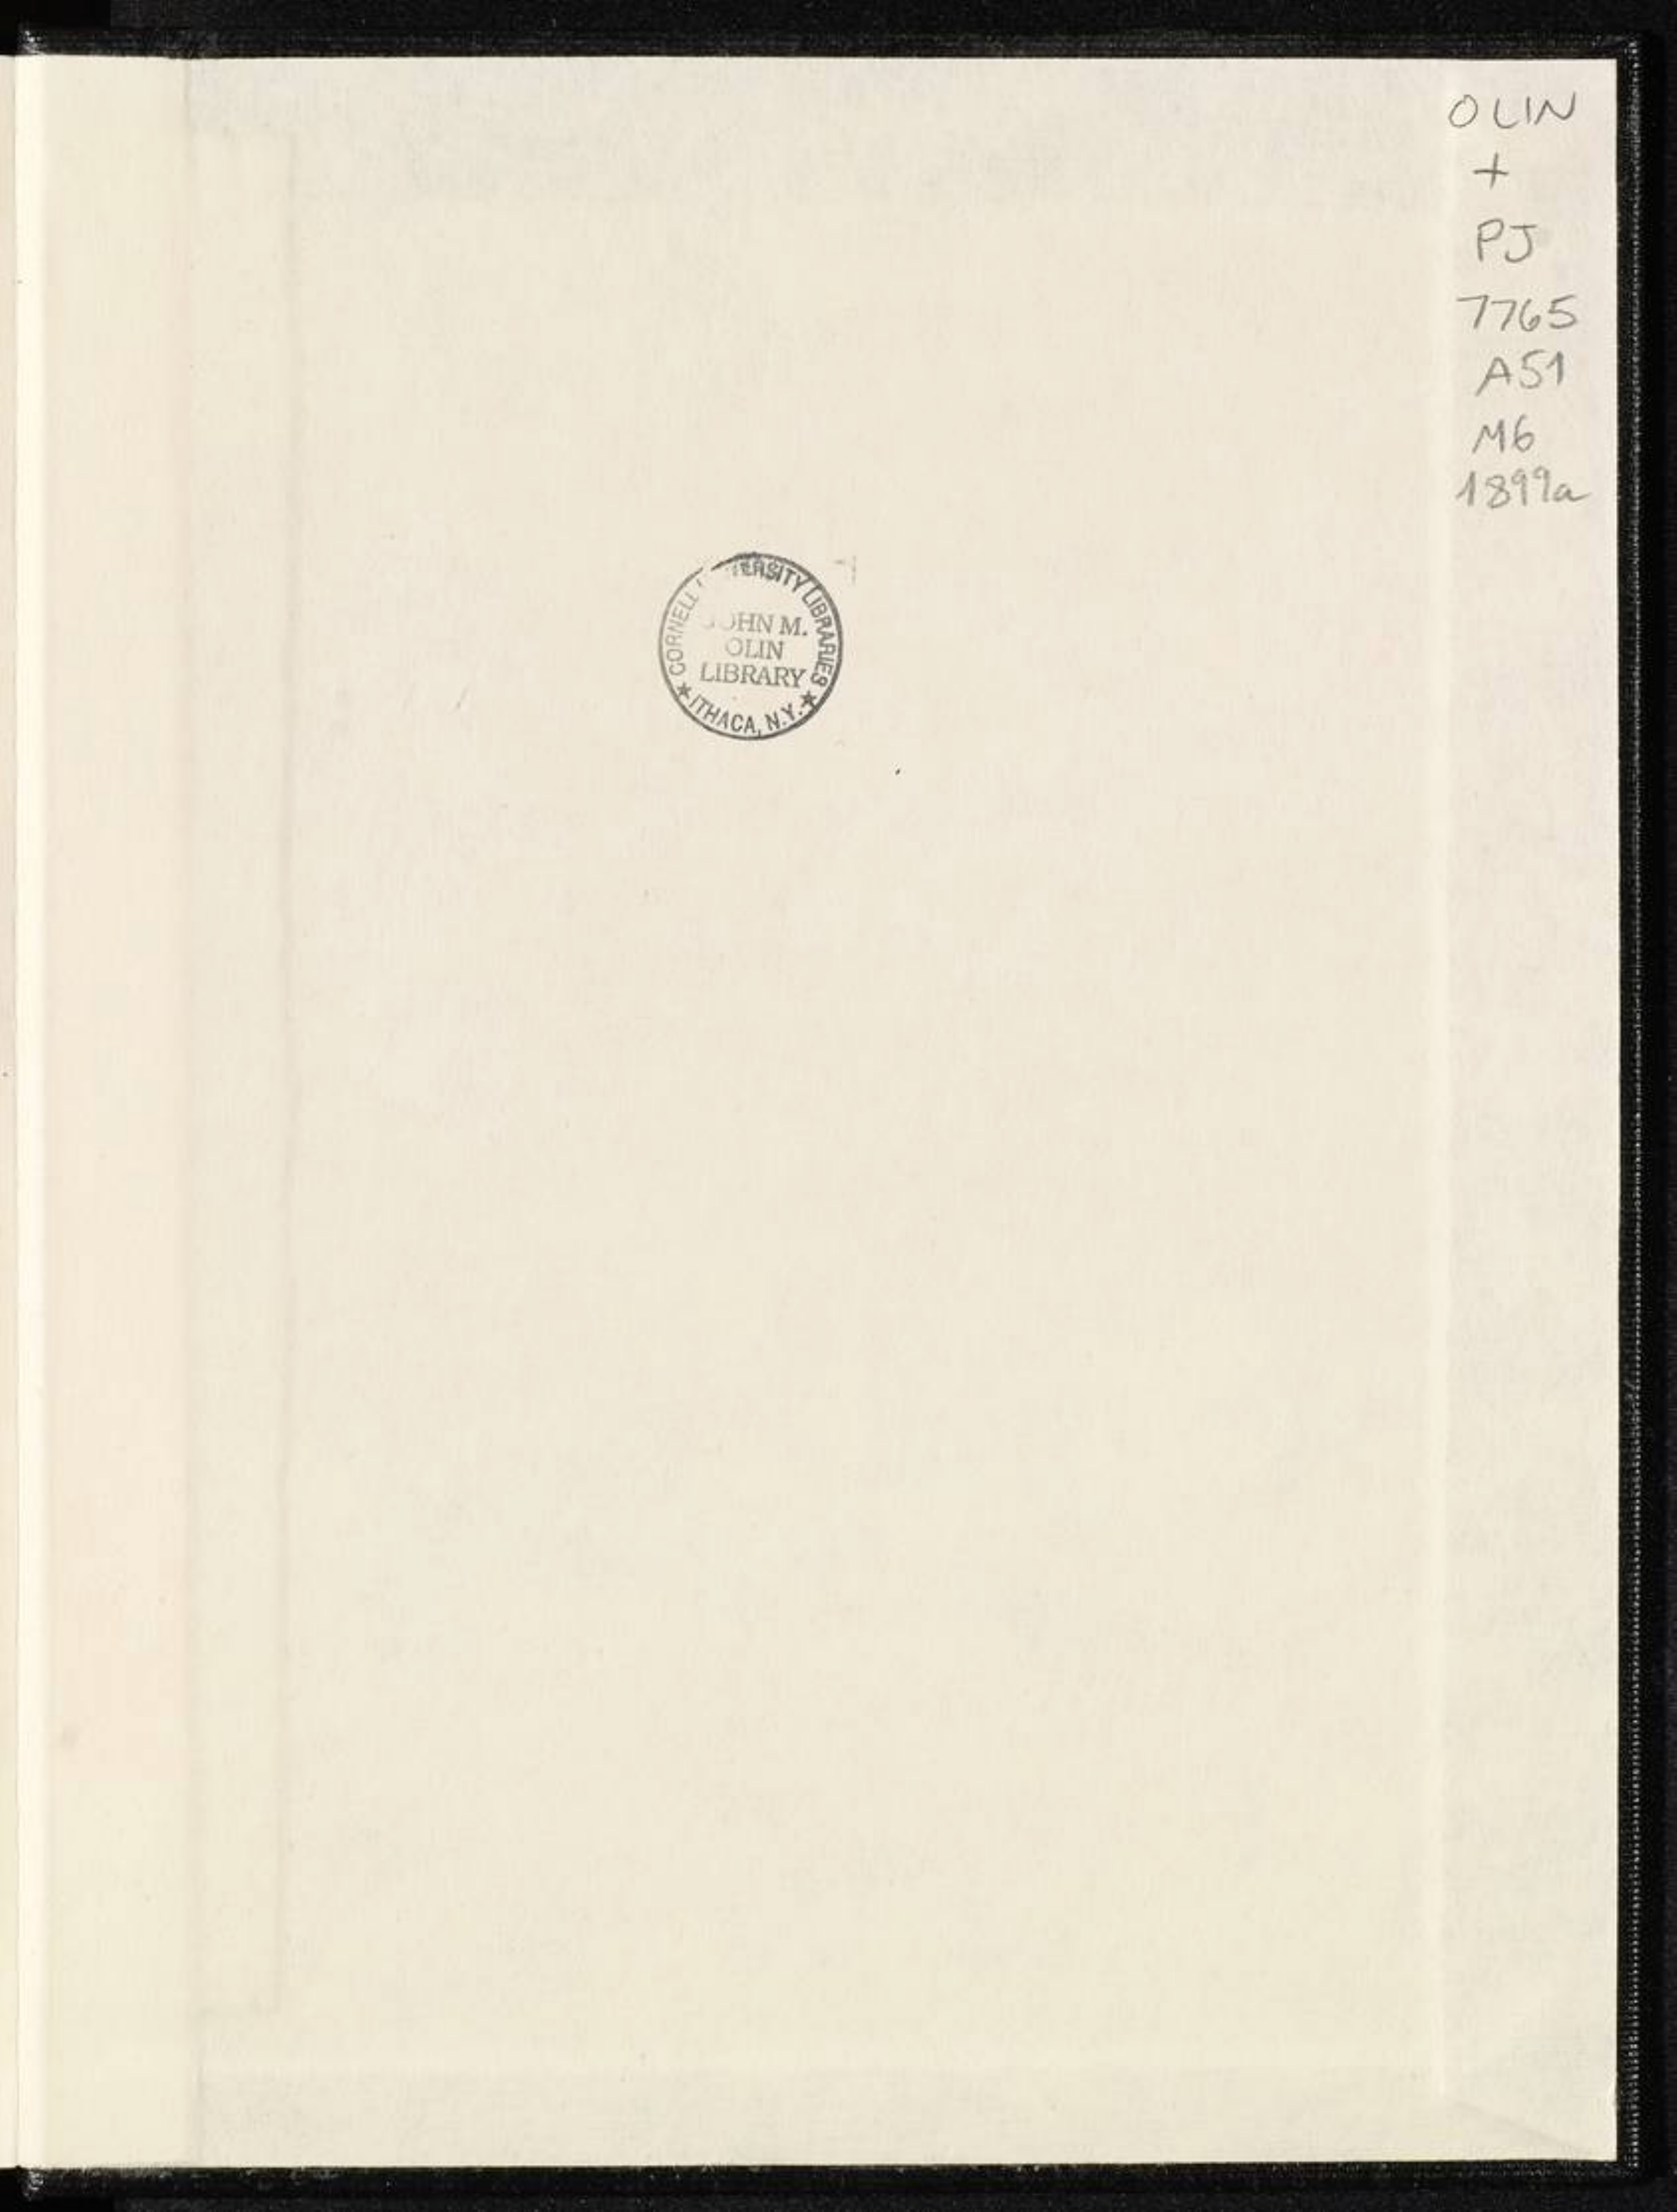 OLIN
+
PJ
7765
A51
M6
1899a
CORNELL UNIVERSITY LIBRARIES
JOHN M.
OLIN
LIBRARY
★ ITHACA, N.Y. ★